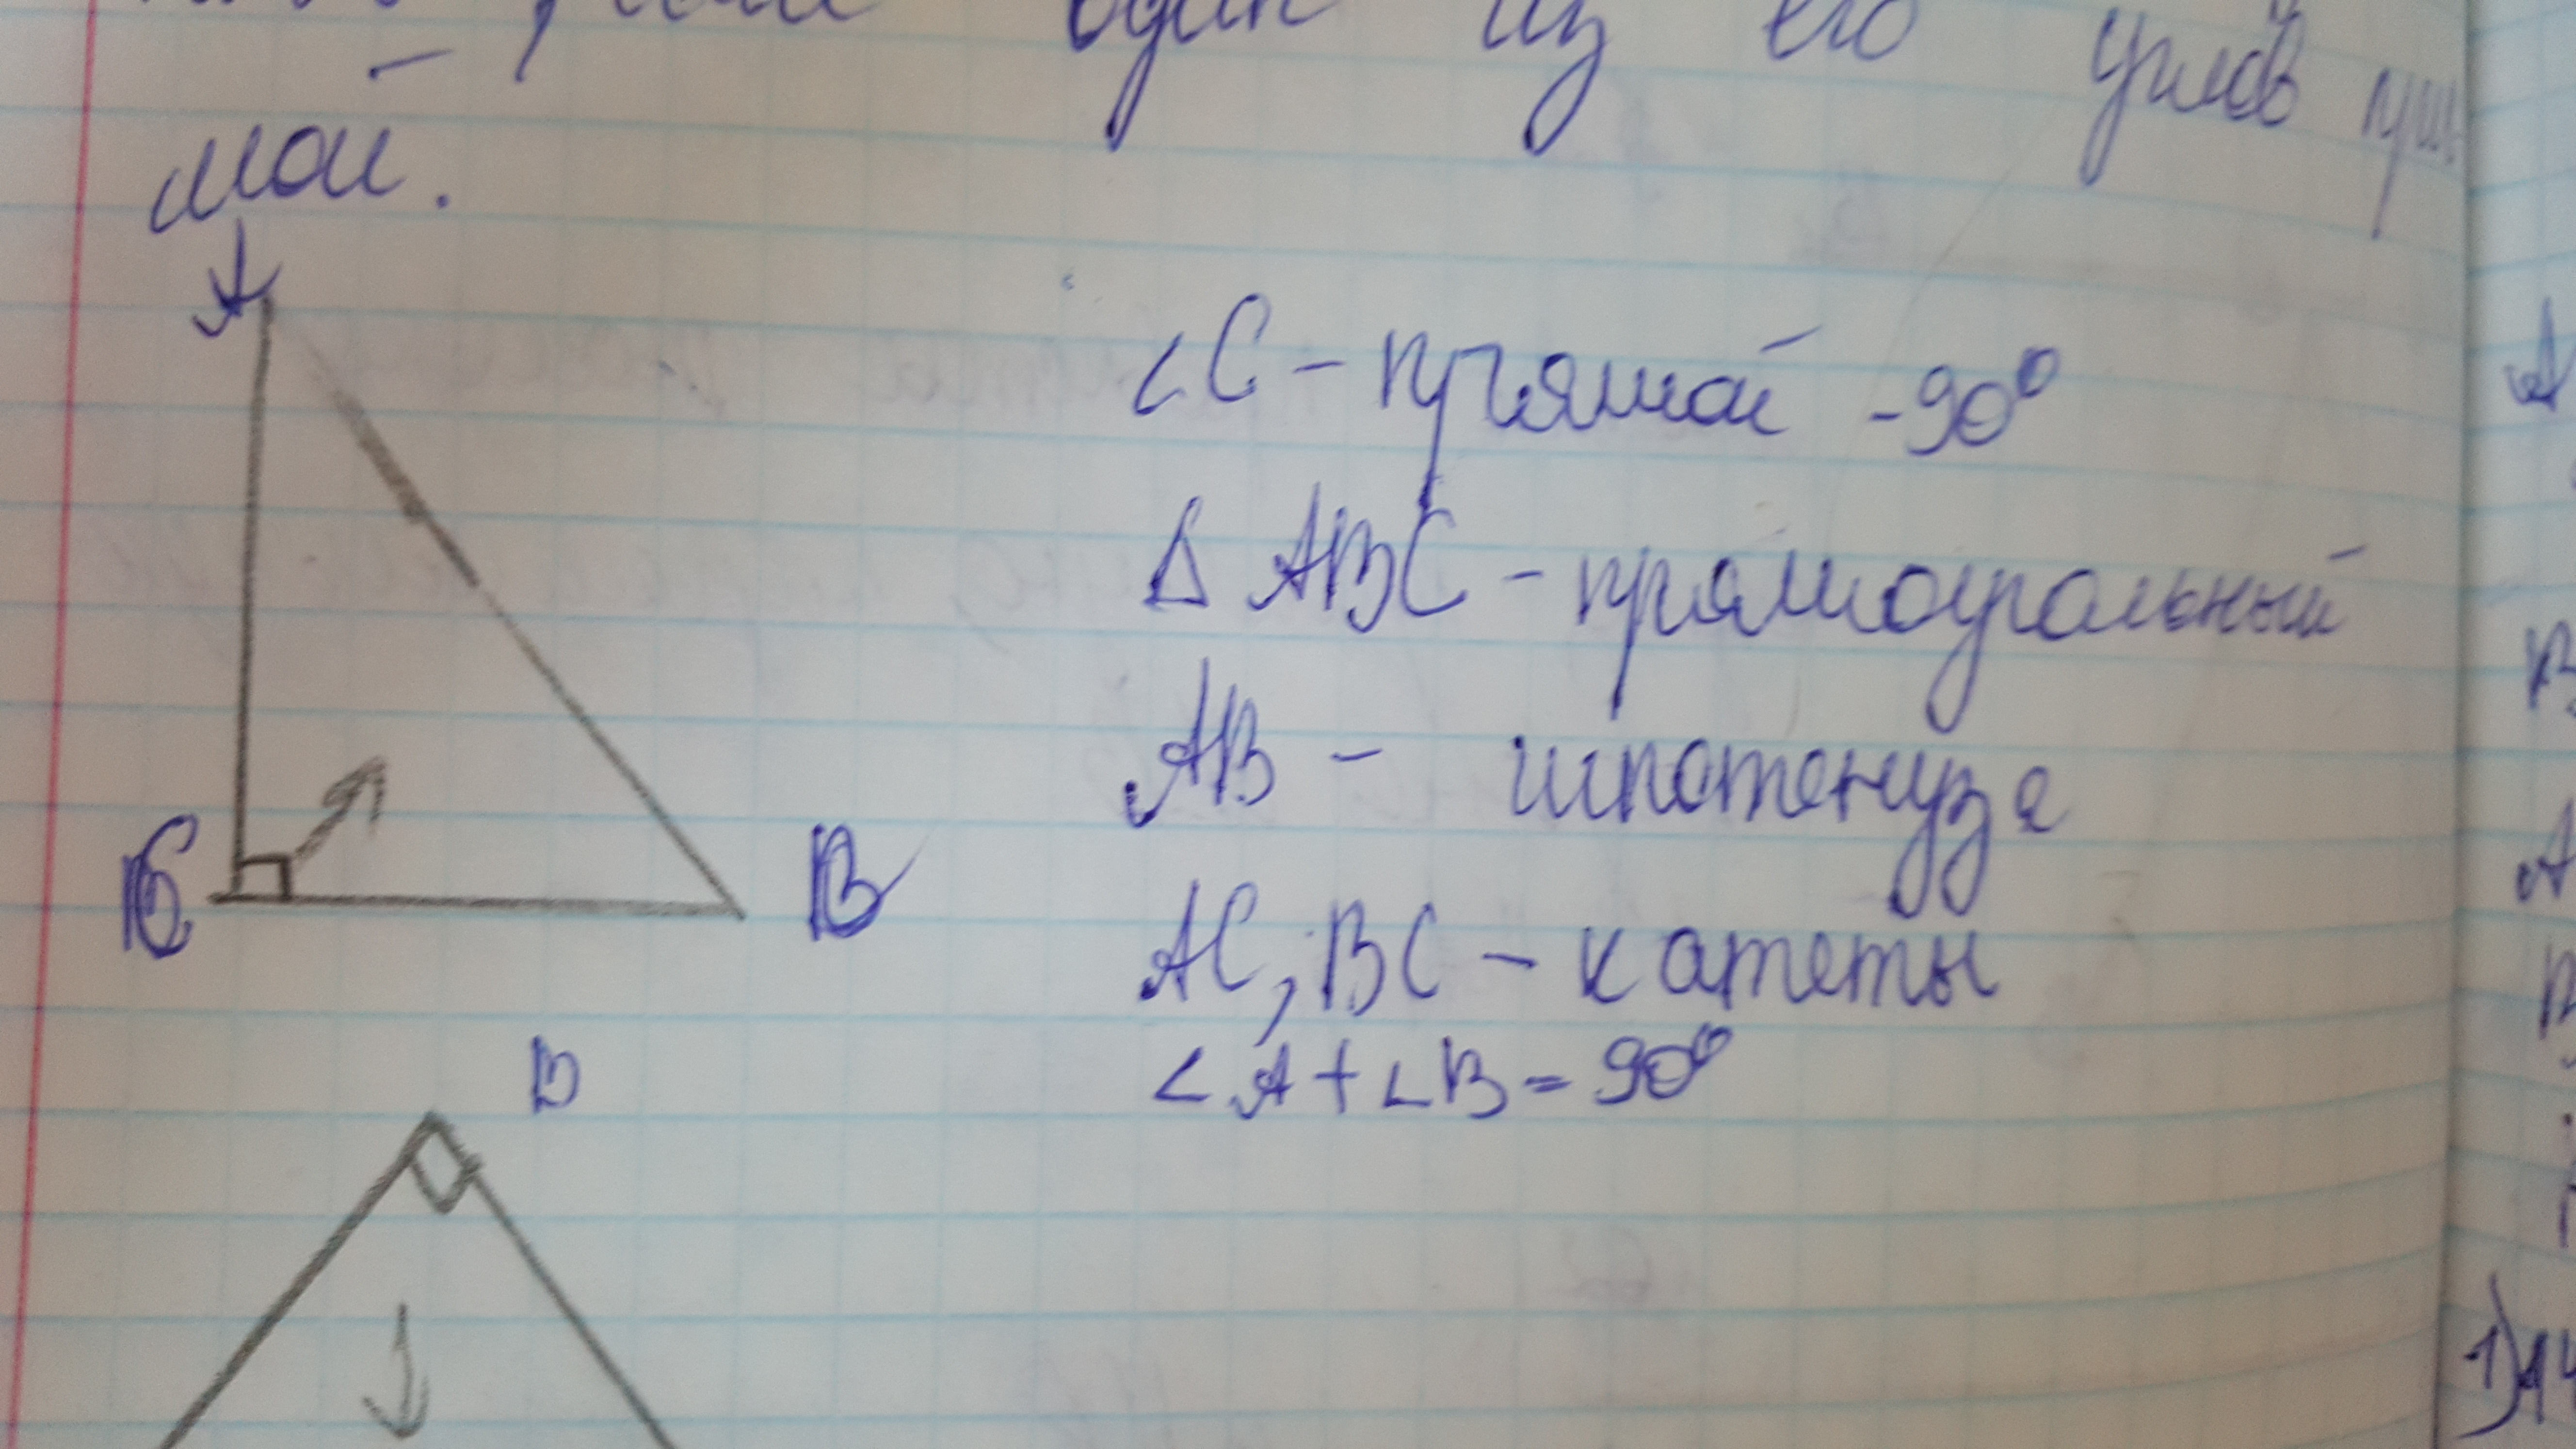 один из его углов пря
мой.
A
∠C - прямой - 90°
Δ ABC - прямоугольный
AB - гипотенуза
C
B
AC, BC - катеты
∠A + ∠B = 90°
D
A
B
A
B
1)